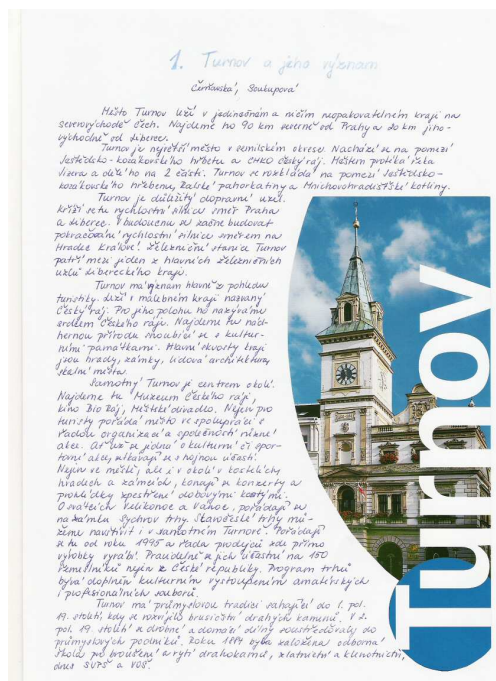 1. Turnov a jeho význam
Čerňavská, Soukupová
Město Turnov leží v jedinečném a ničím neopakovatelném kraji na
severovýchodě Čech. Najdeme ho 90 km severně od Prahy a 20 km jiho-
východně od Liberec.
Turnov je největší město v semilském okrese. Nachází se na pomezí
Ještědsko-kozákovského hřbetu a CHKO Český ráj. Městem protéká řeka
Jizera a dělí ho na 2 části. Turnov se rozkládá na pomezí Ještědsko-
kozákovského hřebenu, Žalské pahorkatiny a Mnichovohradišťské kotliny.
Turnov je důležitý dopravní uzel.
Kříží se tu rychlostní silnice směr Praha
a Liberec. V budoucnu se začne budovat
pokračování rychlostní silnice směrem na
Hradec Králové. Železniční stanice Turnov
patří mezi jeden z hlavních železničních
uzlů Libereckého kraje.
Turnov má význam hlavně z pohledu
turistiky. Leží v malebném kraji nazvaný
Český ráj. Pro jeho polohu ho nazýváme
srdcem Českého ráje. Najdeme tu nád-
hernou přírodu snoubící se s kultur-
ními památkami. Hlavní skvosty kraje
jsou hrady, zámky, lidová architektura,
skalní města.
Samotný Turnov je centrem okolí.
Najdeme tu Muzeum Českého ráje,
kino Bio Ráj, Městské divadlo. Nejen pro
turisty pořádá město ve spolupráci s
řadou organizací a společností různé
akce. Ať už se jedná o kulturní či spor-
tovní akce, setkávají se s hojnou účastí.
Nejen ve městě, ale i v okolí v kostelích
hradech a zámcích, konají se koncerty a
prohlídky zpestřené dobovými kostými.
O svátcích Velikonoce a Vánoc, pořádají se
na zámku Sychrov trhy. Staročeské trhy mů-
žeme navštívit i v samotném Turnově. Pořádají
se tu od roku 1995 a řada prodejců zde přímo
výrobky vyrábí. Pravidelně se jich účastní na 150
řemeslníků nejen z České republiky. Program trhů
bývá doplněn kulturním vystoupením amatérských
i profesionálních souborů.
Turnov má průmyslovou tradici sahající do 1. pol.
19. století, kdy se rozvíjelo brusičství drahých kamenů. V 2.
pol. 19. století se drobné a domácí dílny soustřeďovaly do
průmyslových podniků. Roku 1884 byla založena odborná
škola pro broušení a rytí drahokamů, zlatnictví a klenotnictví,
dnes SUPŠ a VOŠ.
Turnov